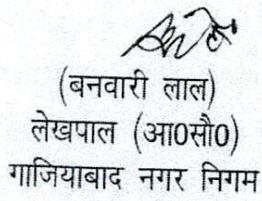 (बनवारी लाल)
लेखपाल (आ0सौ0)
गाजियाबाद नगर निगम